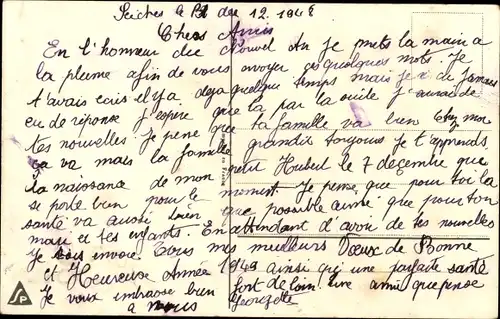 Seiches le 31 dec 12. 1948
Chers Amis
En l'honneur du Nouvel An je mets la main a
la plume afin de vous envoyer ces quelques mots. Je
t'avais ecris il y a deja quelque temps mais je n'ai jamais
eu de réponse j'espère que la par la suite j'aurai de
tes nouvelles Je pense que ta famille va bien Chez moi
ça va mais la famille grandir toujours Je t'apprends
la naissance de mon petit Hubert le 7 decembre que
se porte bien pour le moment. Je pense, que pour toi la
santé va aussi bien que possible ainsi que pour ton
mari et tes enfants. En attendant d'avoir de tes nouvelles
Je vous envoie Tous mes meilleurs Voeux de Bonne
et Heureuse Année 1949 ainsi qu'une parfaite santé
Je vous embrasse bien fort de loin. Une amie que pense
a vous Georgette